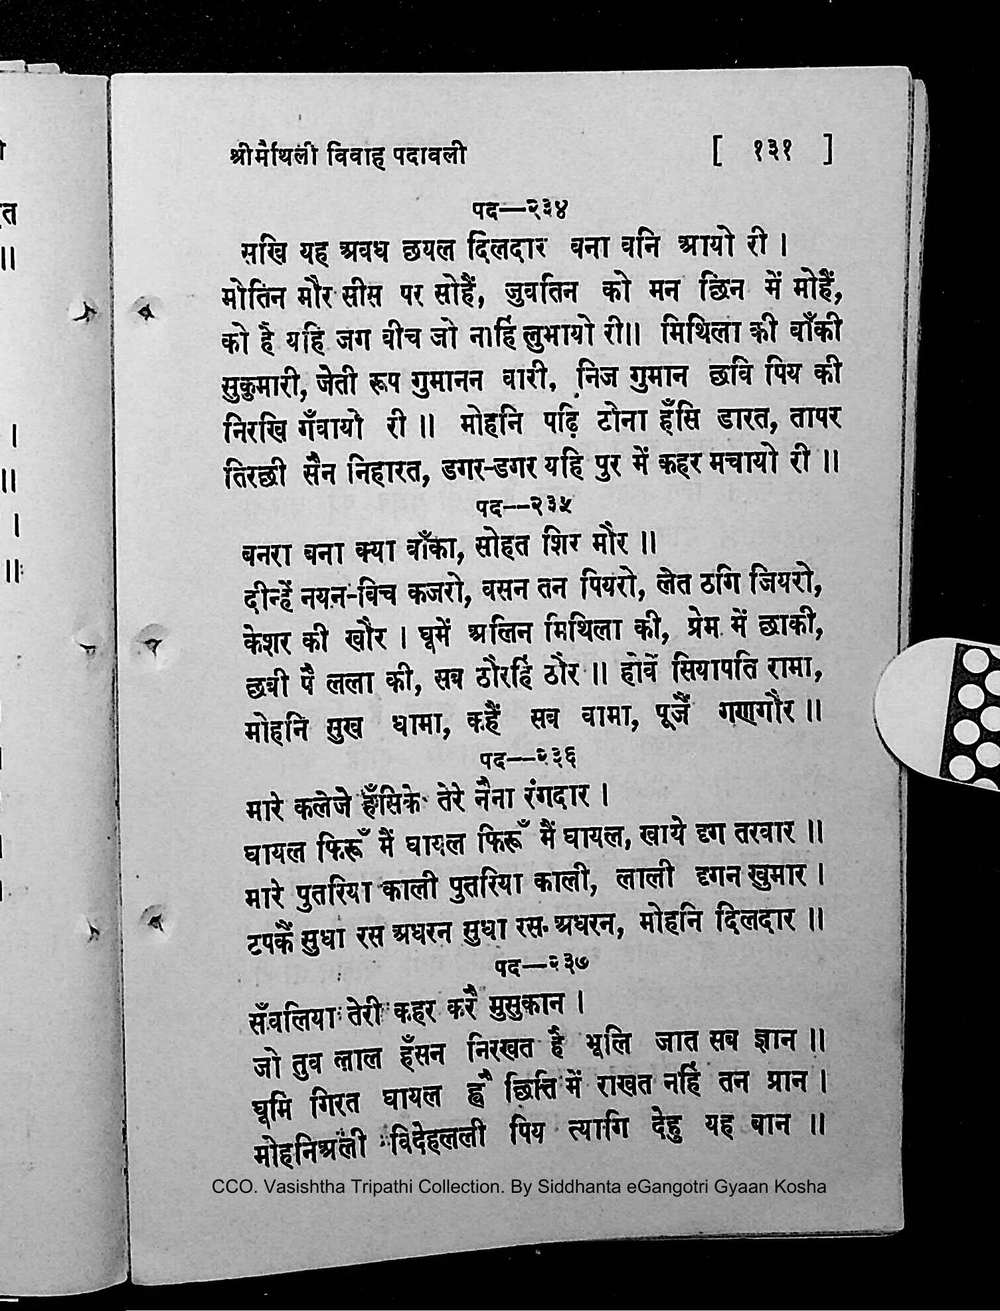 श्रीमैथिली विवाह पदावली [ १३१ ]
पद—२३४
सखि यह अवध छयल दिलदार बना बनि आयो री ।
मोतिन मौर सीस पर सोहैं, जुवतिन को मन छिन में मोहैं,
को है यहि जग बीच जो नाहिं लुभायो री॥ मिथिला की बाँकी
सुकुमारी, जेती रूप गुमानन वारी, निज गुमान छवि पिय की
निरखि गँवायो री ॥ मोहनि पढ़ि टोना हँसि डारत, तापर
तिरछी सैन निहारत, डगर-डगर यहि पुर में कहर मचायो री ॥
पद—२३५
बनरा बना क्या बाँका, सोहत शिर मौर ॥
दीन्हें नयन-विच कजरो, वसन तन पियरो, लेत ठगि जियरो,
केशर की खौर । घूमें अलिन मिथिला की, प्रेम में छाकी,
छबी पै लला की, सब ठौरहिं ठौर ॥ होवें सियापति रामा,
मोहनि सुख धामा, कहैं सब वामा, पूजैं गणगौर ॥
पद—२३६
मारे कलेजे हँसिके तेरे नैना रंगदार ।
घायल फिरूँ मैं घायल फिरूँ मैं घायल, खाये दृग तरवार ॥
मारे पुतरिया काली पुतरिया काली, लाली दृगन खुमार ।
टपकैं सुधा रस अधरन सुधा रस अधरन, मोहनि दिलदार ॥
पद—२३७
सँवलिया तेरी कहर करै मुसुकान ।
जो तुव लाल हँसन निरखत है भूलि जात सब ज्ञान ॥
घूमि गिरत घायल ह्वै छिति में राखत नहिं तन प्रान ।
मोहनिअली विदेहलली पिय त्यागि देहु यह बान ॥
CCO. Vasishtha Tripathi Collection. By Siddhanta eGangotri Gyaan Kosha